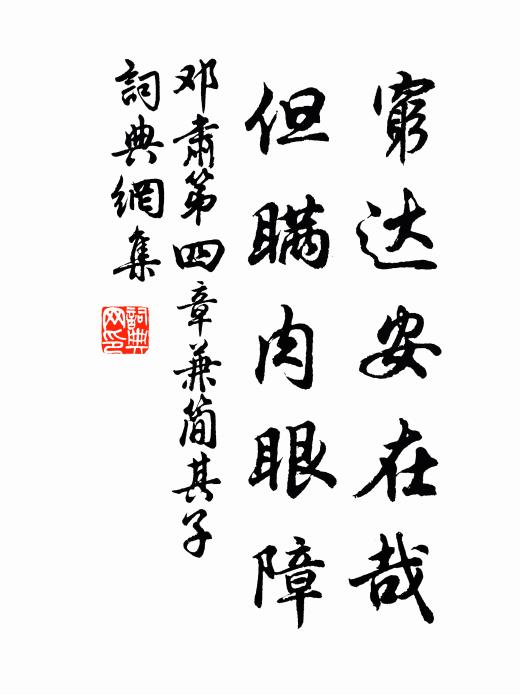 窮达安在哉
但瞒肉眼障
邓肃第四章兼简其子
詞典網集
詞典网印